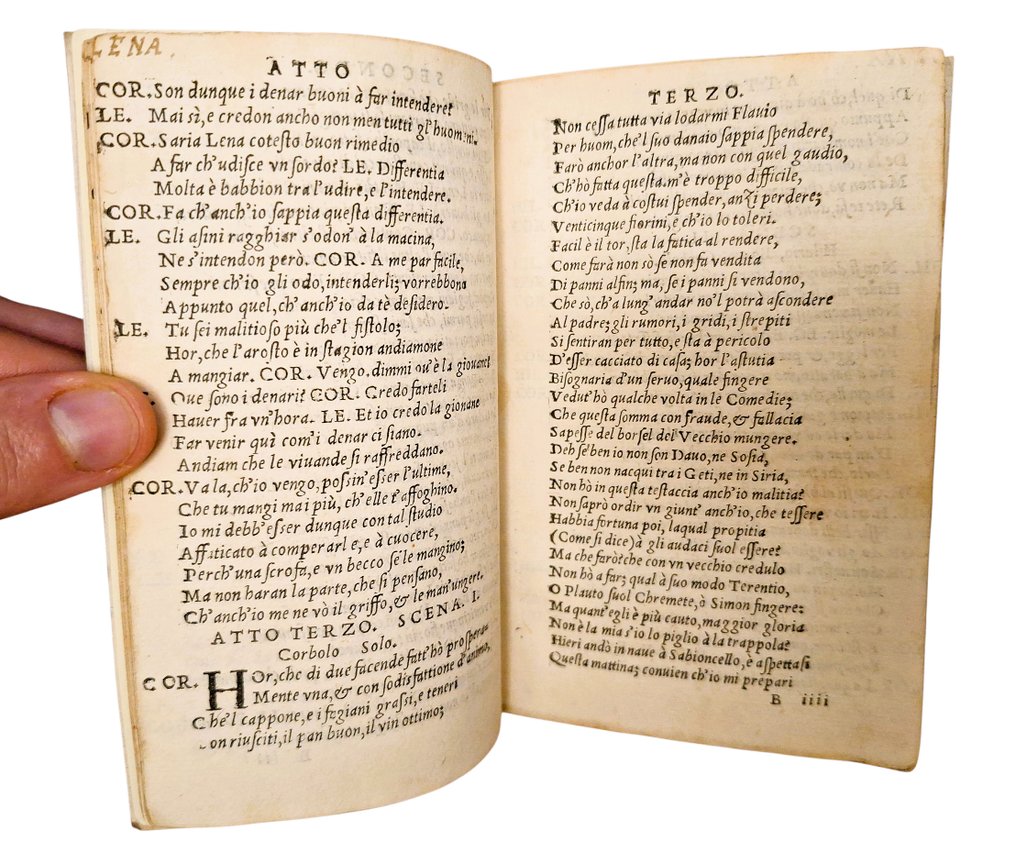 LENA.
ATTO
COR. Son dunque i denar buoni à far intendere?
LE. Mai sì, e credon ancho non men tutti gl'huomini.
COR. Saria Lena cotesto buon rimedio
A far ch'udisce vn sordo? LE. Differentia
Molta è babbion tra l'udire, e l'intendere.
COR. Fa ch'anch'io sappia questa differentia.
LE. Gli asini ragghiar s'odon' à la macina,
Ne s'intendon però. COR. A me par facile,
Sempre ch'io gli odo, intenderli; vorrebbono
Appunto quel, ch'anch'io da tè desidero.
LE. Tu sei malitioso più che'l fistolo;
Hor, che l'arosto è in stagion andiamone
A mangiar. COR. Vengo. dimmi ou'è la giouane?
Oue sono i denari? COR. Credo farteli
Hauer fra vn'hora. LE. Et io credo la giouane
Far venir quì com'i denar ci siano.
Andiam che le viuande si raffreddano.
COR. Va la, ch'io vengo, possin'esser l'ultime,
Che tu mangi mai più, ch'elle t'affoghino.
Io mi debb'esser dunque con tal studio
Affaticato à comperarle, e à cuocere,
Perch'una scrofa, e vn becco se le mangino;
Ma non haran la parte, che si pensano,
Ch'anch'io me ne vò il griffo, & le man'ungere.
ATTO TERZO. SCENA. I.
Corbolo Solo.
COR. HOr, che di due facende fatt'hò prosperam
Mente vna, & con sodisfattione d'animo,
Che'l cappone, e i fagiani grassi, e teneri
on riusciti, il pan buon, il vin ottimo;
TERZO.
Non cessa tutta via lodarmi Flauio
Per huom, che'l suo danaio sappia spendere,
Farò anchor l'altra, ma non con quel gaudio,
Ch'hò fatta questa. m'è troppo difficile,
Ch'io veda à costui spender, anzi perdere;
Venticinque fiorini, e ch'io lo toleri.
Facil è il tor, sta la fatica al rendere,
Come farà non sò se non fa vendita
Di panni alfin; ma, se i panni si vendono,
Che sò, ch'a lung'andar no'l potrà ascondere
Al padre; gli rumori, i gridi, i strepiti
Si sentiran per tutto, e stà à pericolo
D'esser cacciato di casa; hor l'astutia
Bisognaria d'un seruo, quale fingere
Vedut'hò qualche volta in le Comedie;
Che questa somma con fraude, & fallacia
Sapesse del borsel del Vecchio mungere.
Deh se ben io non son Dauo, ne Sosia,
Se ben non nacqui tra i Geti, ne in Siria,
Non hò in questa testaccia anch'io malitia?
Non saprò ordir vn giunt'anch'io, che tessere
Habbia fortuna poi, laqual propitia
(Come si dice) à gli audaci suol essere?
Ma che farò? che con vn vecchio credulo
Non hò a far; qual à suo modo Terentio,
O Plauto suol Chremete, ò Simon fingere:
Ma quant'egli è più cauto, maggior gloria
Non è la mia s'io lo piglio à la trappola?
Hieri andò in naue à Sabioncello, è aspettasi
Questa mattina; conuien ch'io mi prepari
B iiii